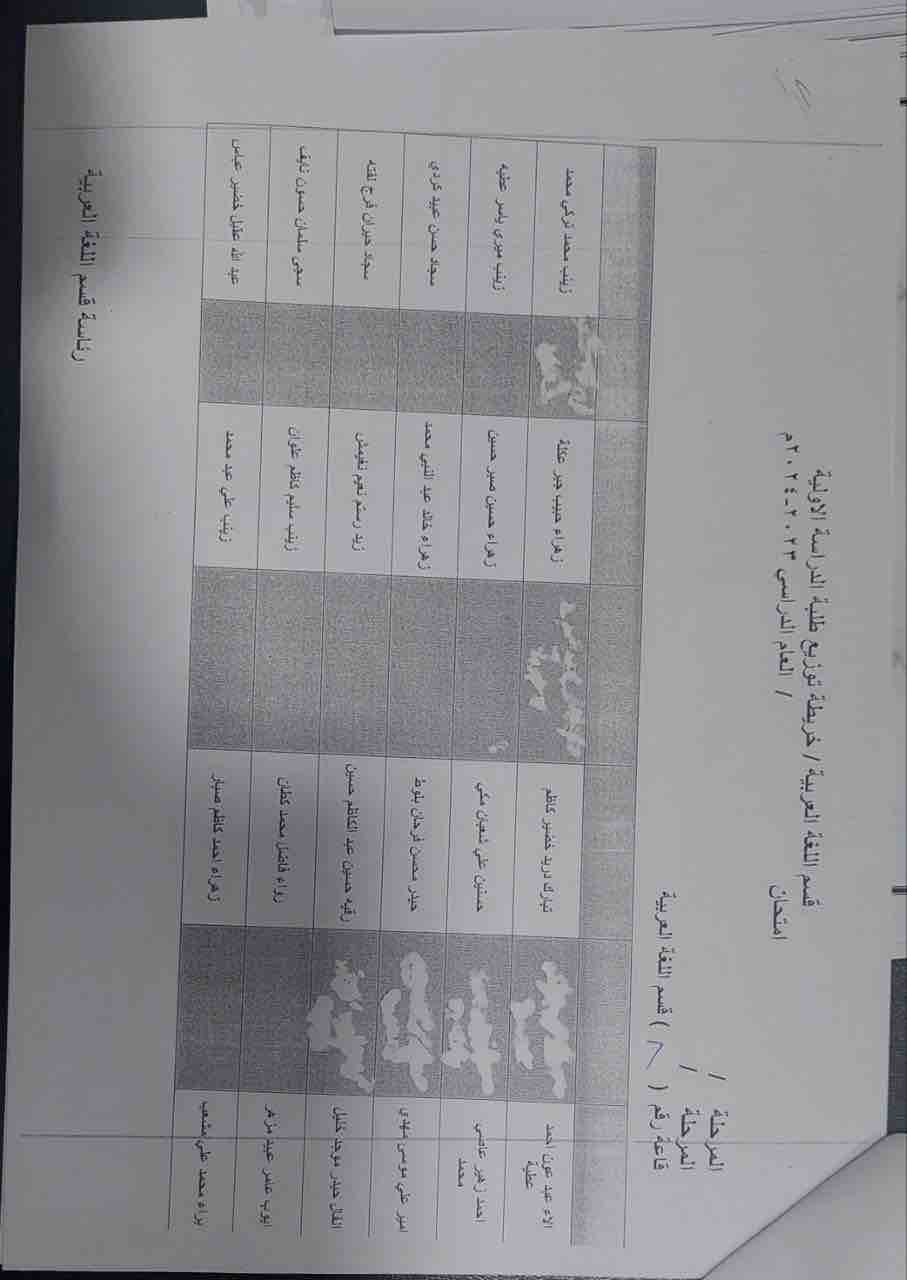 قسم اللغة العربية / خريطة توزيع طلبة الدراسة الاولية
امتحان / العام الدراسي ٢٠٢٣-٢٠٢٤م
المرحلة /
المرحلة /
قاعة رقم ( ٨ ) قسم اللغة العربية
الاء عبد عون احمد عطية تبارك دريد خضير كاظم زهراء حبيب جبر عكلة زينب محمد تركي محمد
احمد زهير عاصي محمد حسنين علي شعبان مكي زهراء حسين صبر حسين زينب ميري ياسر عطيه
امير علي موسى مهدي حيدر محسن فرحان بلوط زهراء خالد عبد النبي محمد سجاد حسن عبد كردي
انفال حيدر موجد خليل رقيه حسين عبد الكاظم حسين زيد رستم نعيم نغيمش سجاد خيران فرج لفته
ايوب عامر عبيد مزهر رواء فاضل محمد كطان زينب سليم كاظم علوان سجى سلمان حسون نايف
براء محمد علي شعيب زهراء احمد كاظم صبار زينب علي عبد محمد عبد الله عقيل خضير عباس
رئاسة قسم اللغة العربية